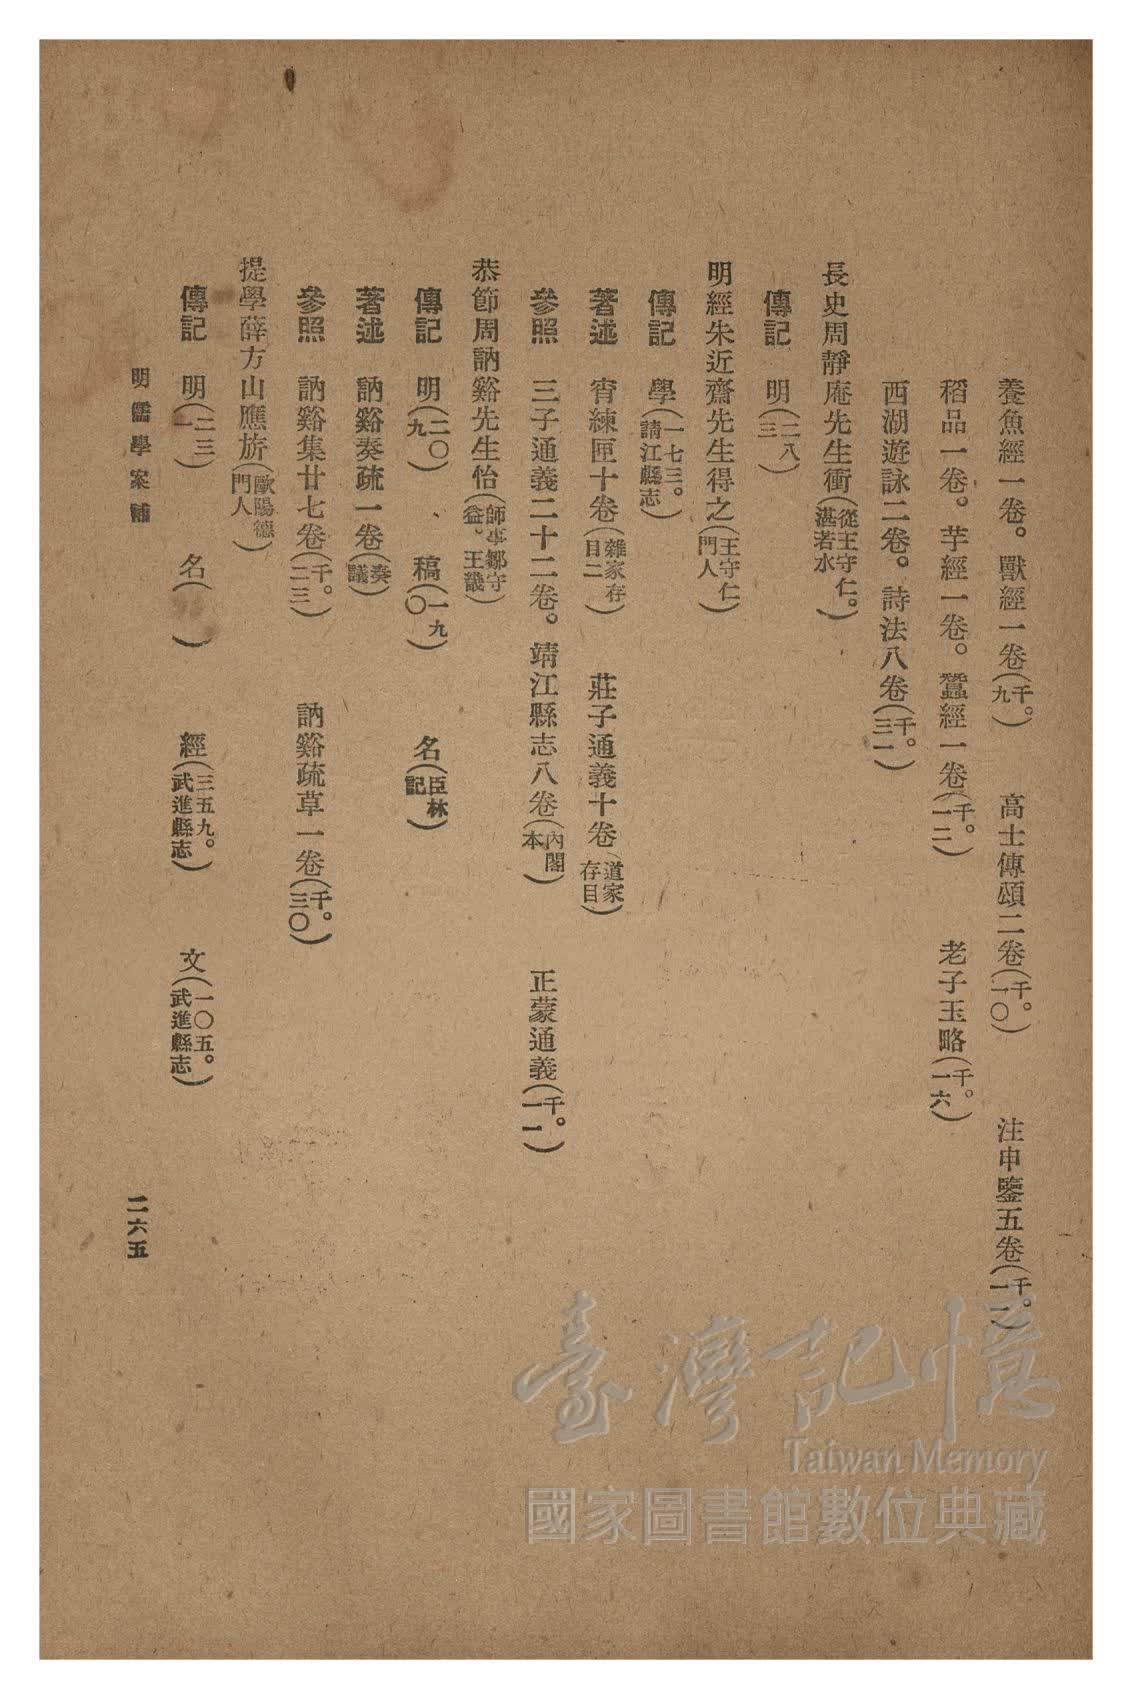 養魚經一卷。獸經一卷(千。九)　高士傳頌二卷(千。一〇)　注申鑒五卷(千。一一)
稻品一卷。芋經一卷。蠶經一卷(千。一二)　老子玉略(千。一六)
西湖遊詠二卷。詩法八卷(千。三一)
長史周靜庵先生衝(從王守仁。湛若水)
傳記　明(二八三)
明經朱近齋先生得之(王守仁門人)
傳記　學(一七三。請江縣志)
著述　宵練匣十卷(雜家存目二)　莊子通義十卷(道家存目)
參照　三子通義二十二卷。靖江縣志八卷(內閣本)　正蒙通義(千。一一)
恭節周訥谿先生怡(師事鄒守益。王畿)
傳記　明(二〇九)、稿(一九〇)　名(臣林記)
著述　訥谿奏疏一卷(奏議)
參照　訥谿集廿七卷(千。二三)　訥谿疏草一卷(千。三〇)
提學薛方山應旂(歐陽德門人)
傳記　明(二三一)　名(　)　經(三五九。武進縣志)　文(一〇五。武進縣志)
明儒學案補
二六五
臺灣記憶
Taiwan Memory
國家圖書館數位典藏